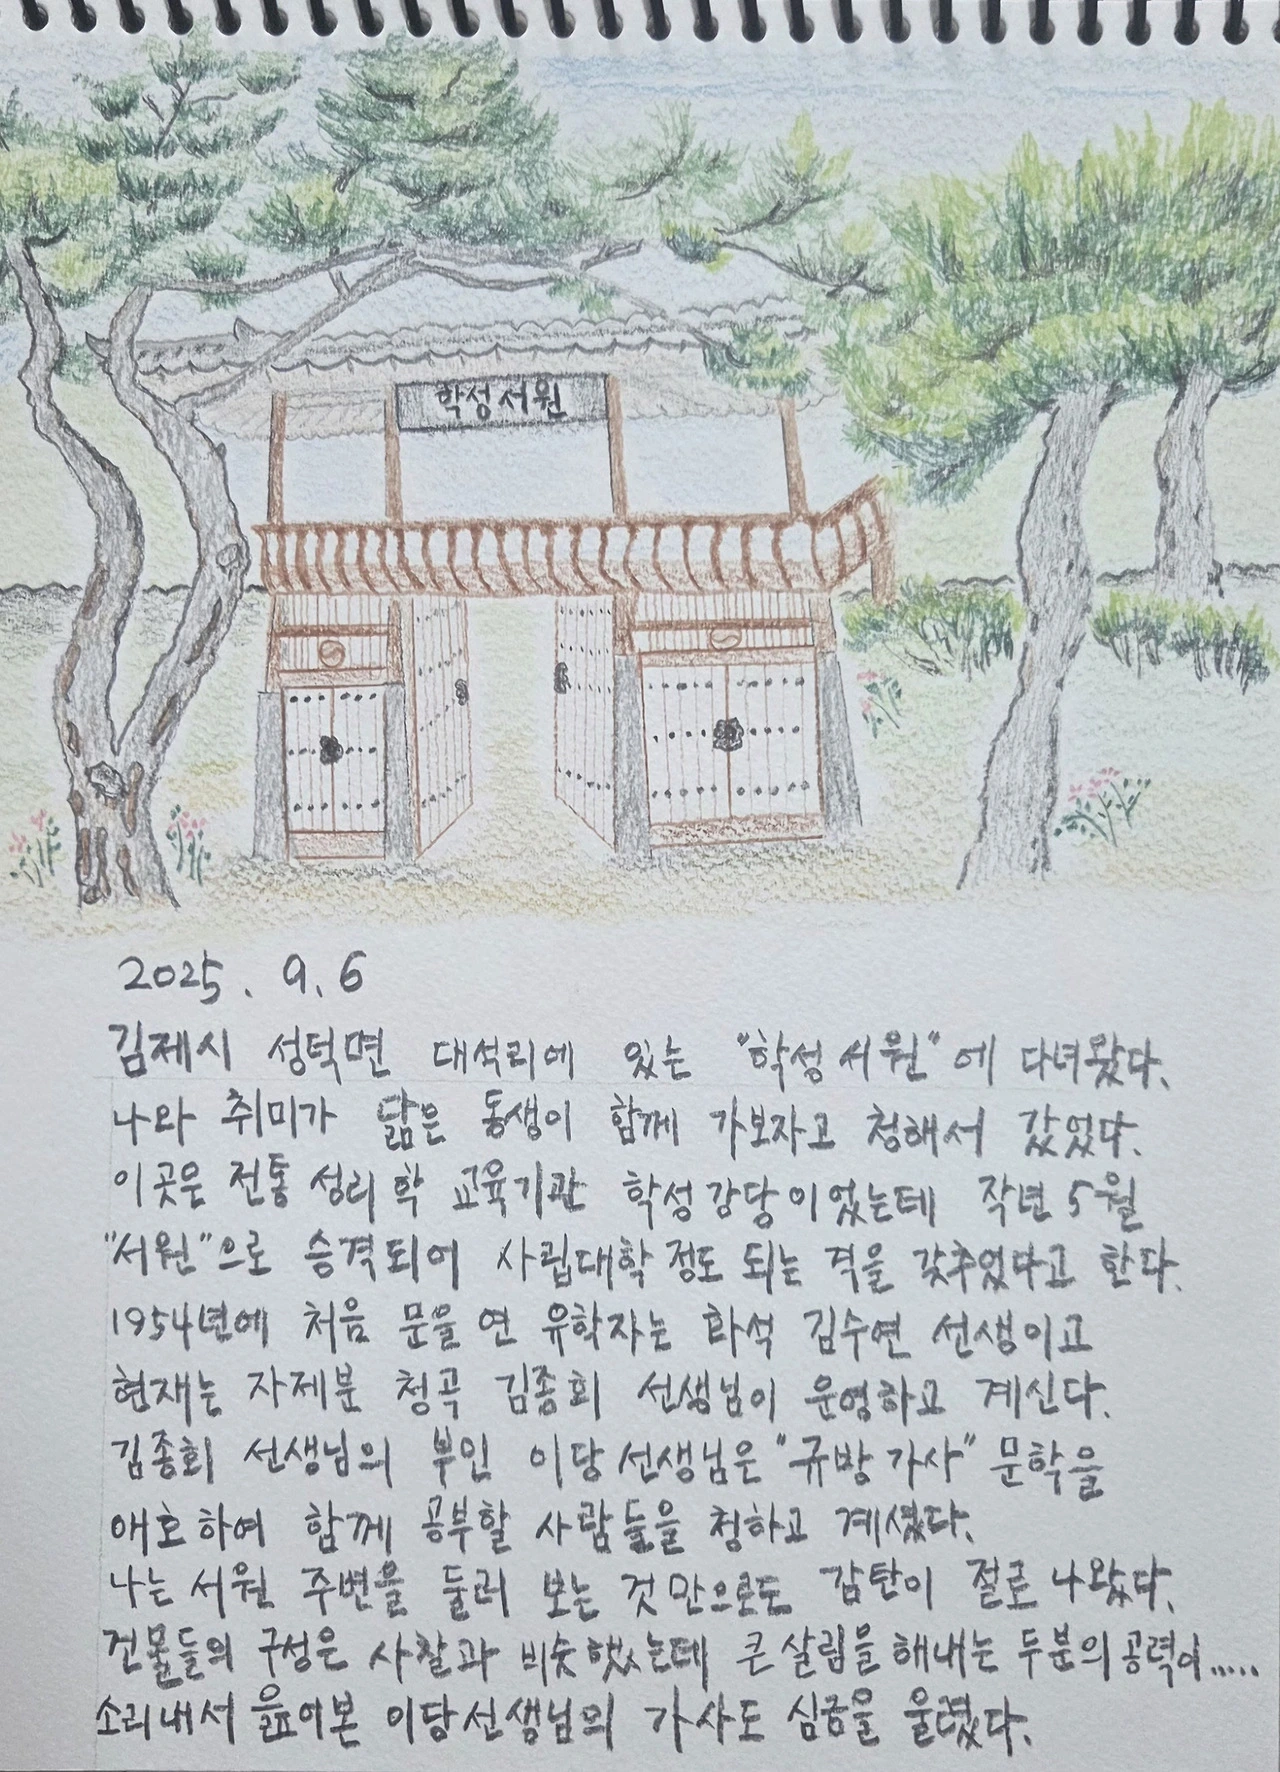 학성서원
2025. 9. 6
김제시 성덕면 대석리에 있는 "학성서원"에 다녀왔다.
나와 취미가 닮은 동생이 함께 가보자고 청해서 갔었다.
이곳은 전통 성리학 교육기관 학성강당이었는데 작년 5월
"서원"으로 승격되어 사립대학 정도 되는 격을 갖추었다고 한다.
1954년에 처음 문을 연 유학자는 화석 김수연 선생이고
현재는 자제분 청곡 김종회 선생님이 운영하고 계신다.
김종회 선생님의 부인 이당선생님은 "규방가사" 문학을
애호하여 함께 공부할 사람들을 청하고 계셨다.
나는 서원 주변을 둘러 보는 것만으로도 감탄이 절로 나왔다.
건물들의 구성은 사찰과 비슷했는데 큰살림을 해내는 두분의 공력이.....
소리내서 읊어본 이당선생님의 가사도 심금을 울렸다.